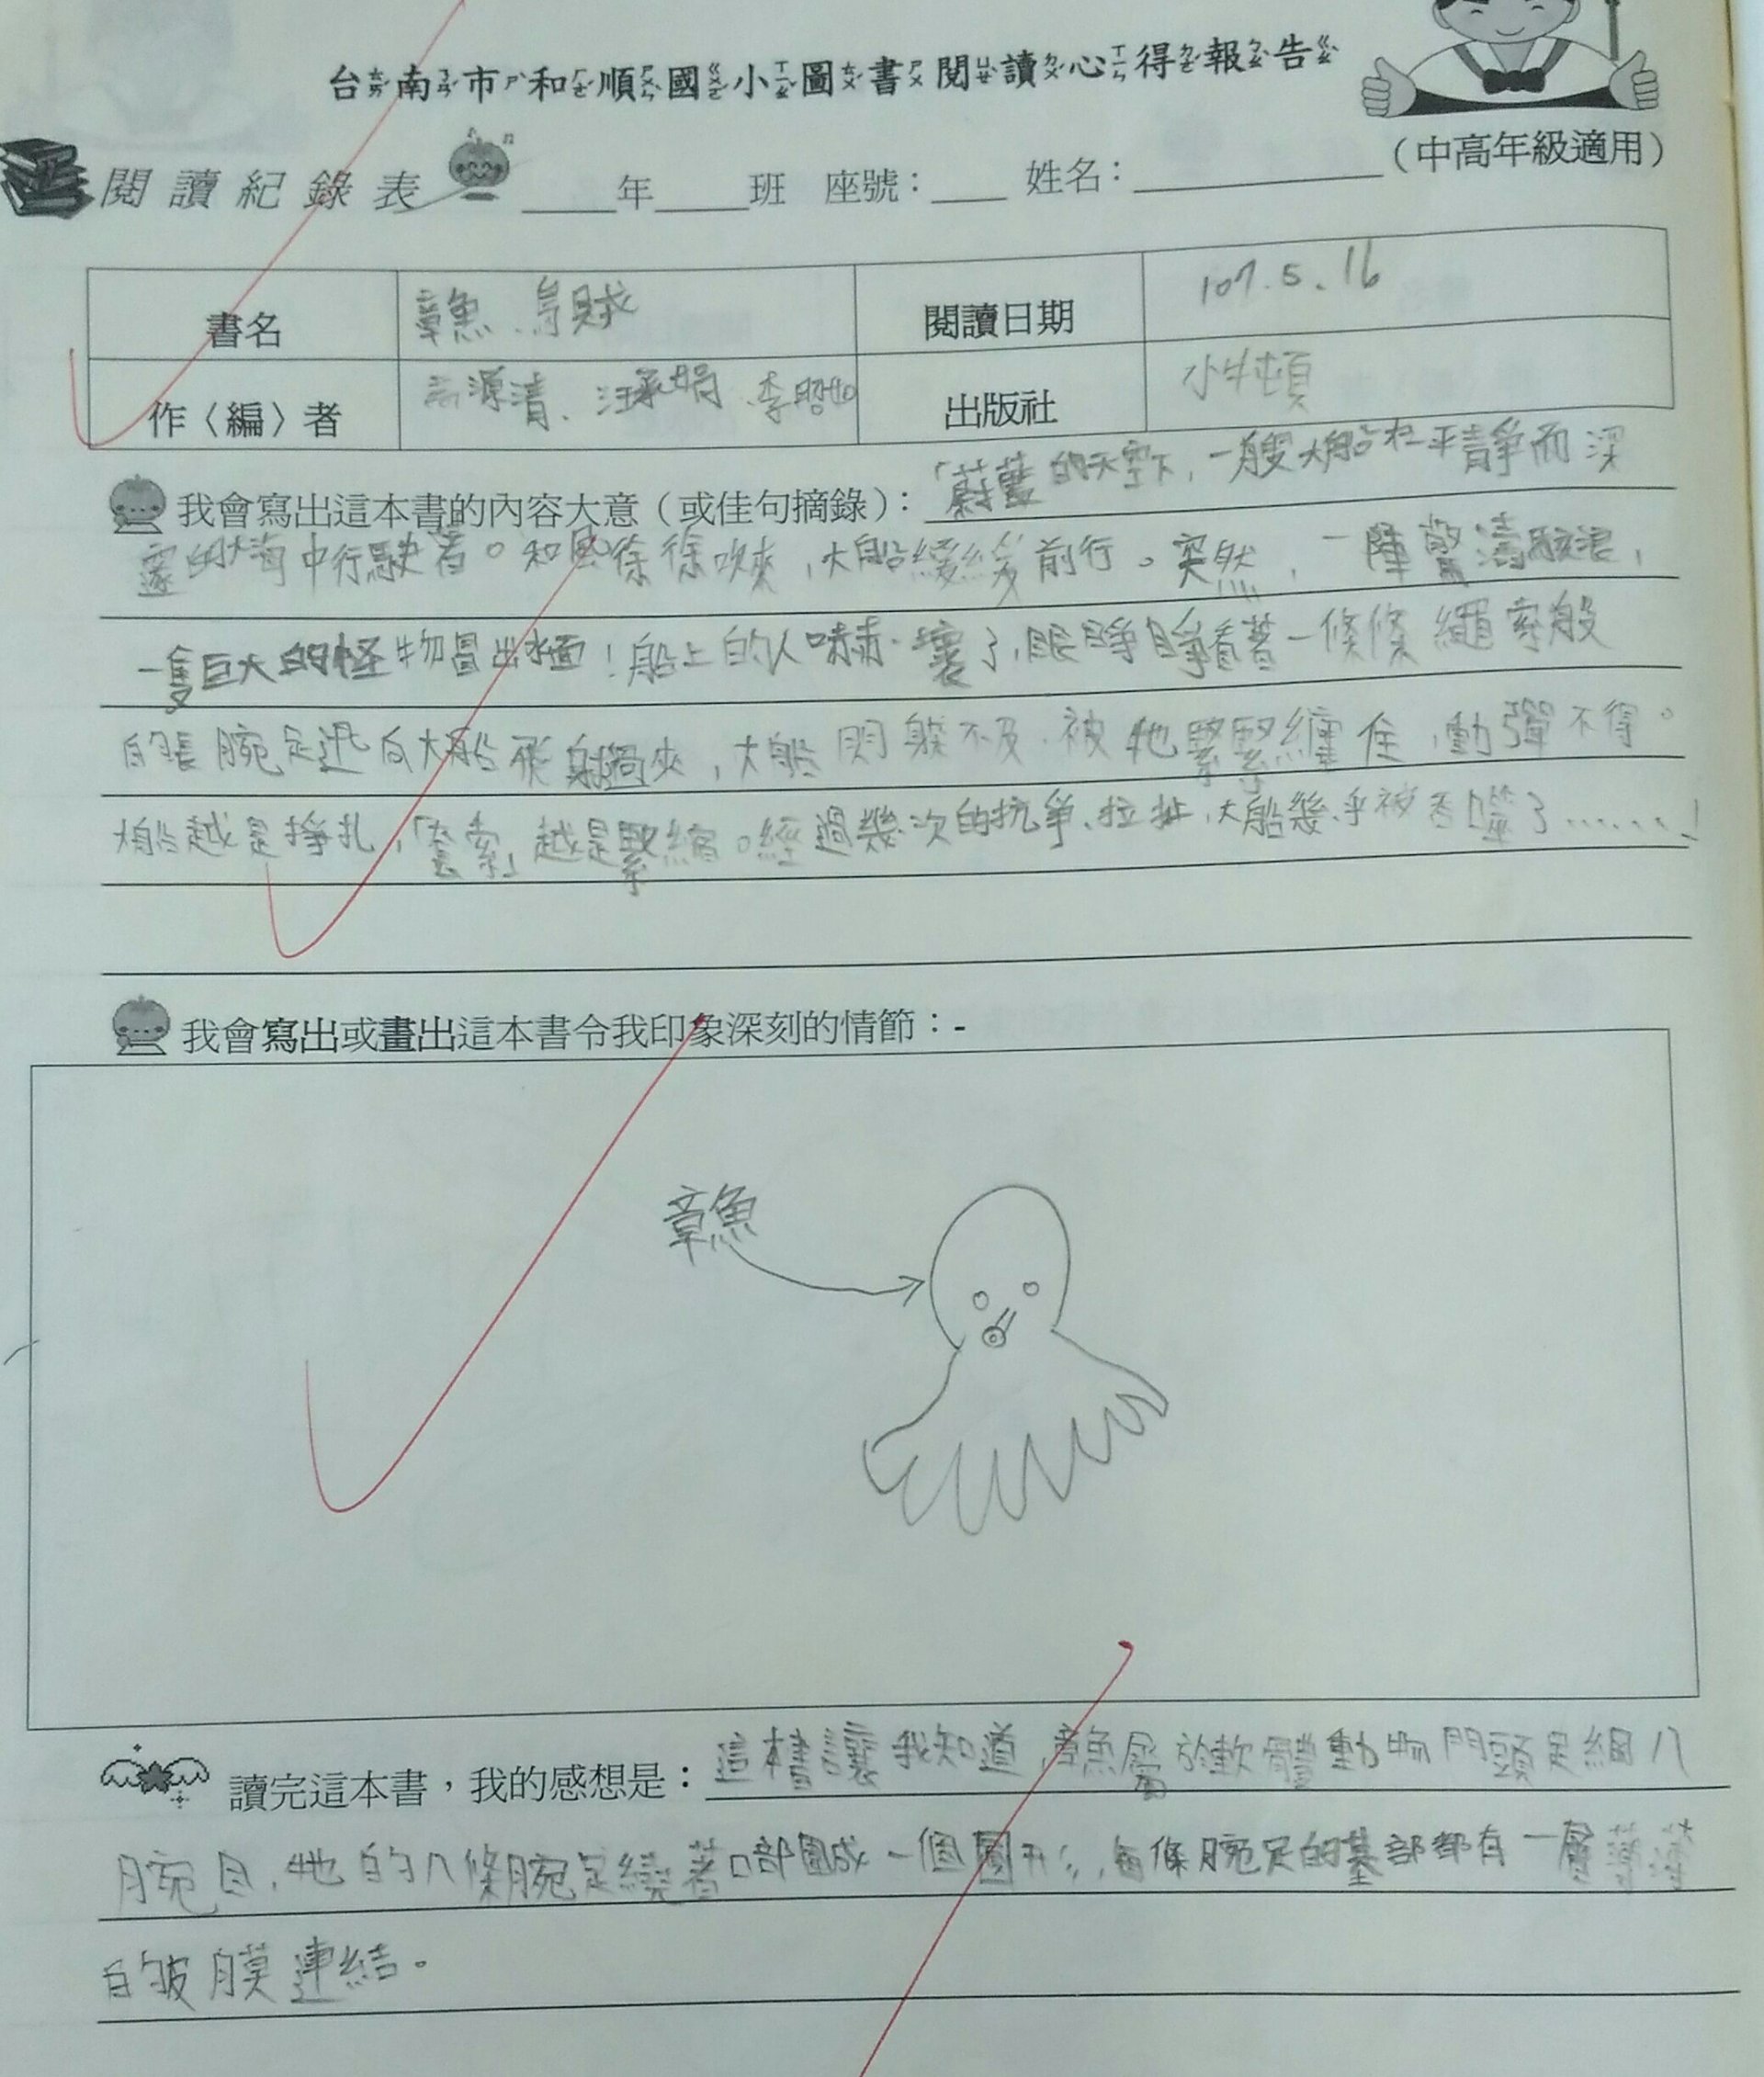 台南市和順國小圖書閱讀心得報告
閱讀紀錄表 ____年____班 座號：____ 姓名：________ （中高年級適用）
書名 章魚、烏賊 閱讀日期 107.5.16
作〈編〉者 高源清、汪承娟、李昭如 出版社 小牛頓
我會寫出這本書的內容大意（或佳句摘錄）：「蔚藍的天空下，一艘大船在平靜而深
邃的大海中行駛著。和風徐徐吹來，大船緩緩前行。突然，一陣驚濤駭浪，
一隻巨大的怪物冒出水面！船上的人嚇壞了，眼睜睜看著一條條繩索般
的長腕足迅向大船飛射過來，大船閃躲不及，被牠緊緊纏住，動彈不得。
大船越是掙扎，「套索」越是緊縮。經過幾次的抗爭、拉扯，大船幾乎被吞噬了……」
我會寫出或畫出這本書令我印象深刻的情節：-
章魚
讀完這本書，我的感想是：這本書讓我知道，章魚屬於軟體動物門頭足綱八
腕目，牠的八條腕足繞著口部圍成一個圓形，每條腕足的基部都有一層薄薄
的皮膜連結。